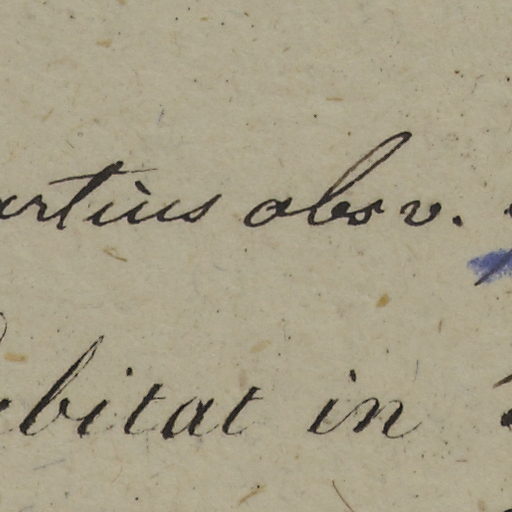 artius obsv.
abitat in